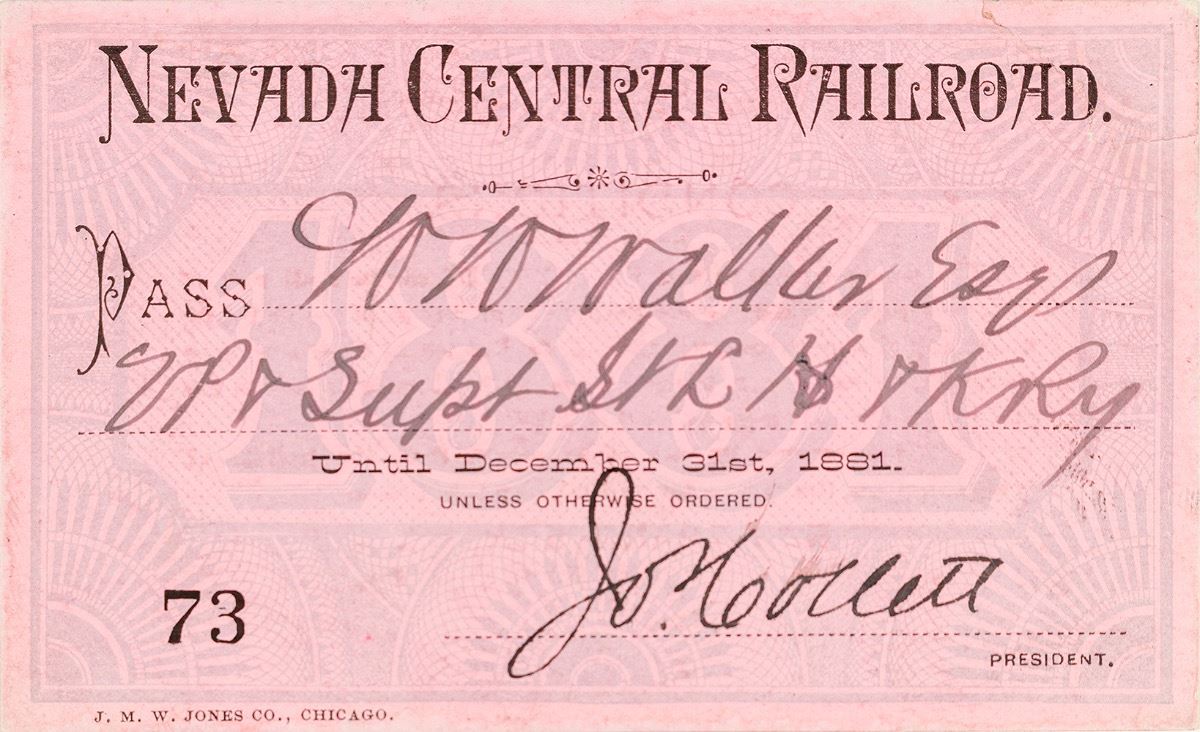 NEVADA CENTRAL RAILROAD.
1881
PASS W W Walker Esq
VP & Supt St L H & K Ry
Until December 31st, 1881.
UNLESS OTHERWISE ORDERED.
Jo. Collett
73
PRESIDENT.
J. M. W. JONES CO., CHICAGO.